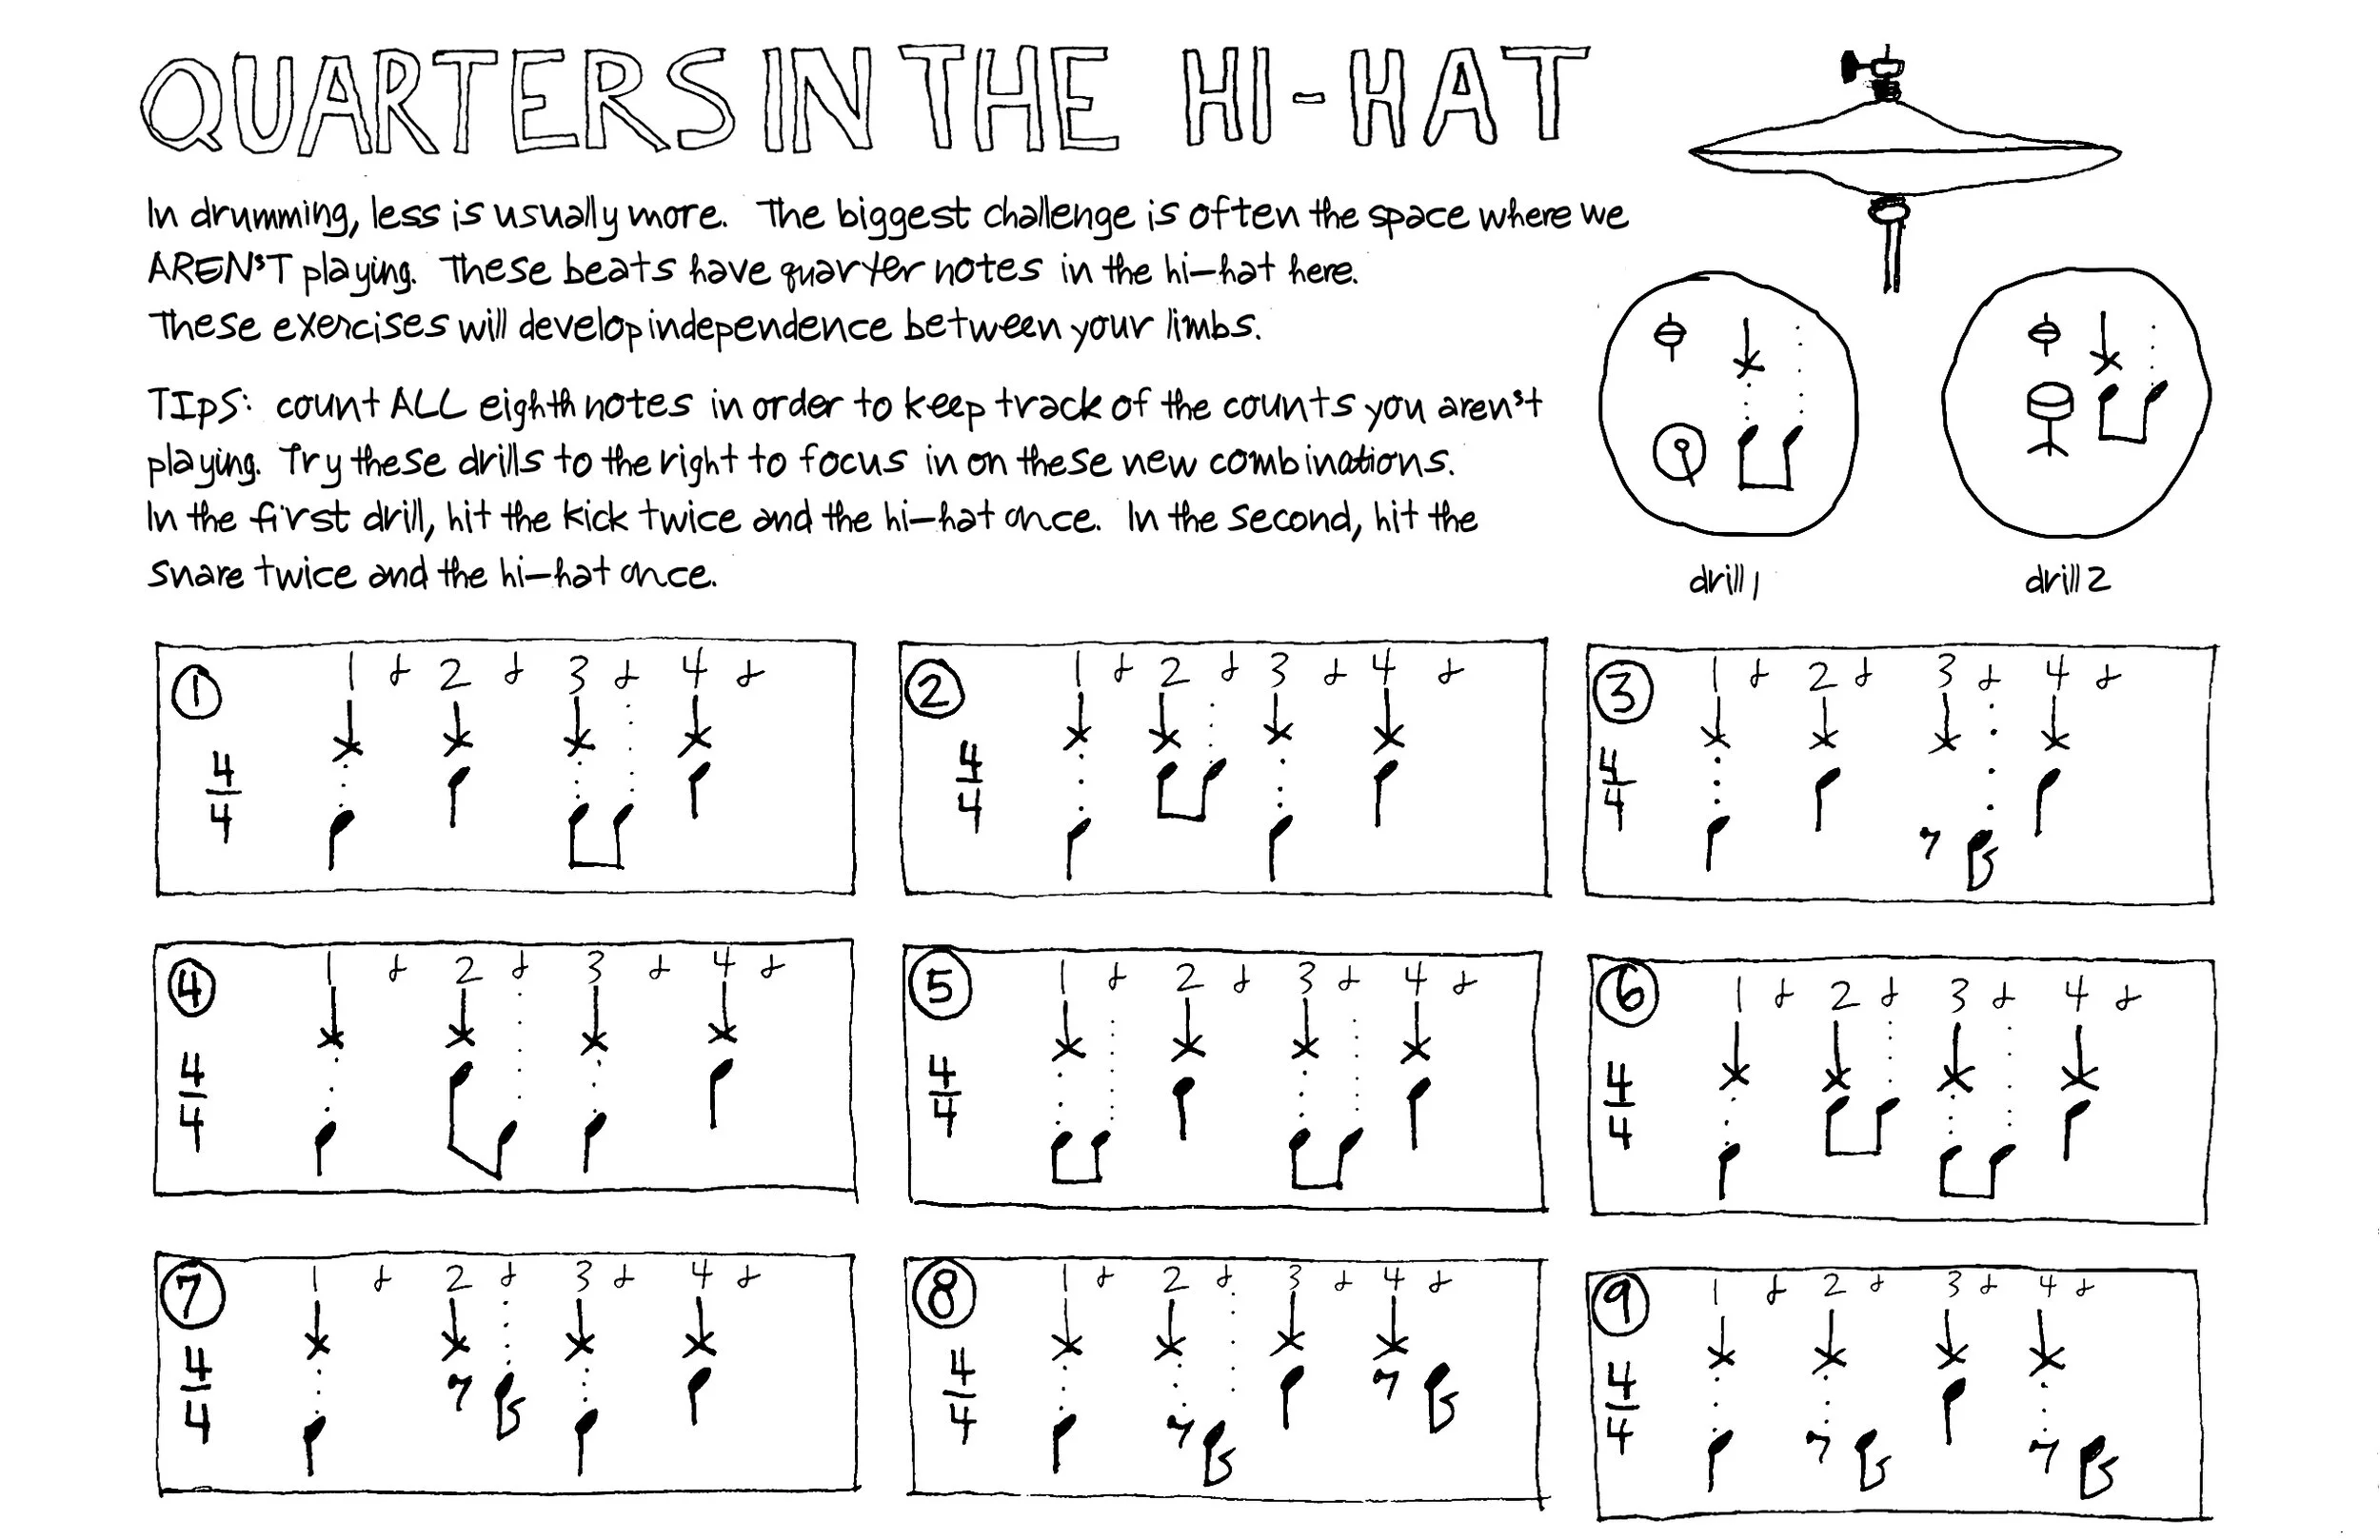 QUARTERS IN THE HI-HAT
In drumming, less is usually more. The biggest challenge is often the space where we
AREN'T playing. These beats have quarter notes in the hi-hat here.
These exercises will develop independence between your limbs.
TIPS: count ALL eighth notes in order to keep track of the counts you aren't
playing. Try these drills to the right to focus in on these new combinations.
In the first drill, hit the kick twice and the hi-hat once. In the second, hit the
snare twice and the hi-hat once.
drill 1
drill 2
1
1 & 2 & 3 & 4 &
4
4
2
1 & 2 & 3 & 4 &
4
4
3
1 & 2 & 3 & 4 &
4
4
4
1 & 2 & 3 & 4 &
4
4
5
1 & 2 & 3 & 4 &
4
4
6
1 & 2 & 3 & 4 &
4
4
7
1 & 2 & 3 & 4 &
4
4
8
1 & 2 & 3 & 4 &
4
4
9
1 & 2 & 3 & 4 &
4
4